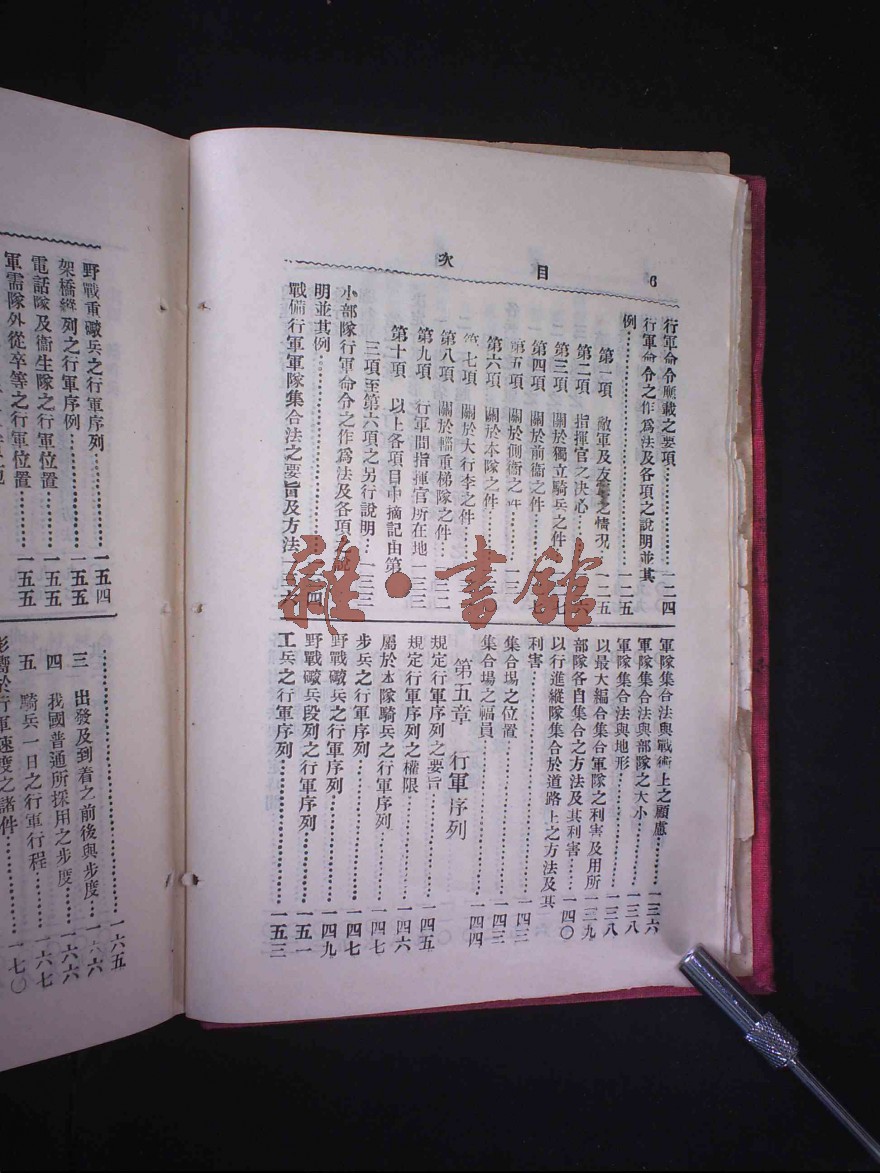 目次
6
行軍命令應載之要項
一二四
行軍命令之作爲法及各項之說明並其
例
一二五
第一項 敵軍及友軍之情況
一二五
第二項 指揮官之決心
第三項 關於獨立騎兵之件
第四項 關於前衛之件
第五項 關於側衛之件
第六項 關於本隊之件
第七項 關於大行李之件
第八項 關於輜重梯隊之件
第九項 行軍間指揮官所在地
一三三
第十項 以上各項目中摘記由第
三項至第六項之另行說明
一三三
小部隊行軍命令之作爲法及各項之說
明並其例
戰備行軍軍隊集合法之要旨及方法
軍隊集合法與戰術上之顧慮
一三六
軍隊集合法與部隊之大小
一三八
軍隊集合法與地形
一三八
以最大編合集合軍隊之利害及用所
一三九
部隊各自集合之方法及其利害
一四〇
以行進縱隊集合於道路上之方法及其
利害
一四三
集合場之位置
一四三
集合場之幅員
一四四
第五章 行軍序列
規定行軍序列之要旨
一四五
規定行軍序列之權限
一四六
屬於本隊騎兵之行軍序列
一四七
步兵之行軍序列
一四七
野戰礮兵之行軍序列
一四九
野戰礮兵段列之行軍序列
一五一
工兵之行軍序列
一五三
野戰重礮兵之行軍序列
一五四
架橋縱列之行軍序例
一五五
電話隊及衞生隊之行軍位置
一五五
軍需隊外從卒等之行軍位置
一五五
一六五
三 出發及到着之前後與步度
一六六
四 我國普通所採用之步度
一六六
五 騎兵一日之行軍行程
一六七
影響於行軍速度之諸件
一七〇
雜·書館